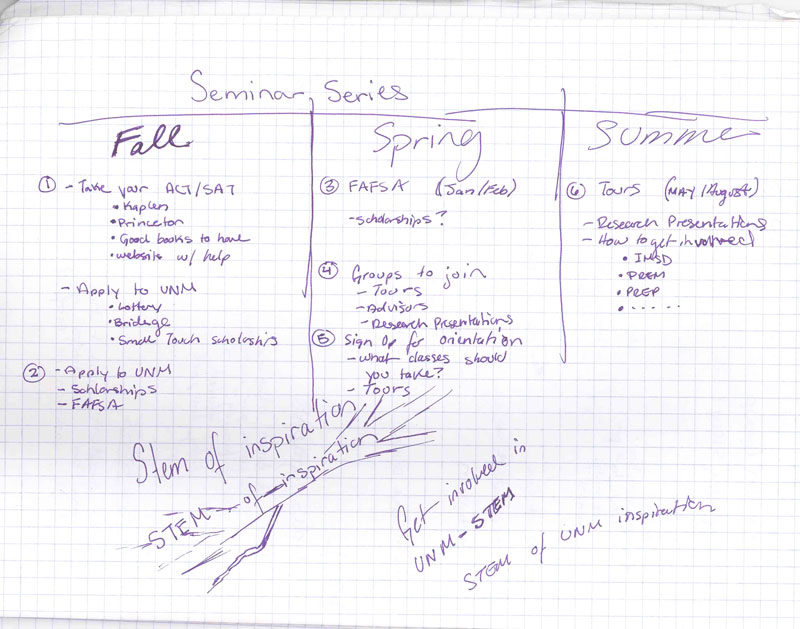 Seminar Series
Fall
① - Take your ACT/SAT
• Kaplen
• Princeton
• Good books to have
• website w/ help
- Apply to UNM
• Lottery
• Bridege
• Small Touch scholarship
② - Apply to UNM
- Scholarships
- FAFSA
Spring
③ FAFSA (Jan/Feb)
- scholarships?
④ Groups to join
- Tours
- Advisors
- Research Presentations
⑤ Sign Up for orientation
- What classes should
you take?
- Tours
Summe
⑥ Tours (MAY/August)
- Research Presentations
- How to get involved
• IMSD
• PREM
• PREP
• .....
Stem of inspiration
STEM of inspiration
Get involved in
UNM - STEM
STEM of UNM inspiration